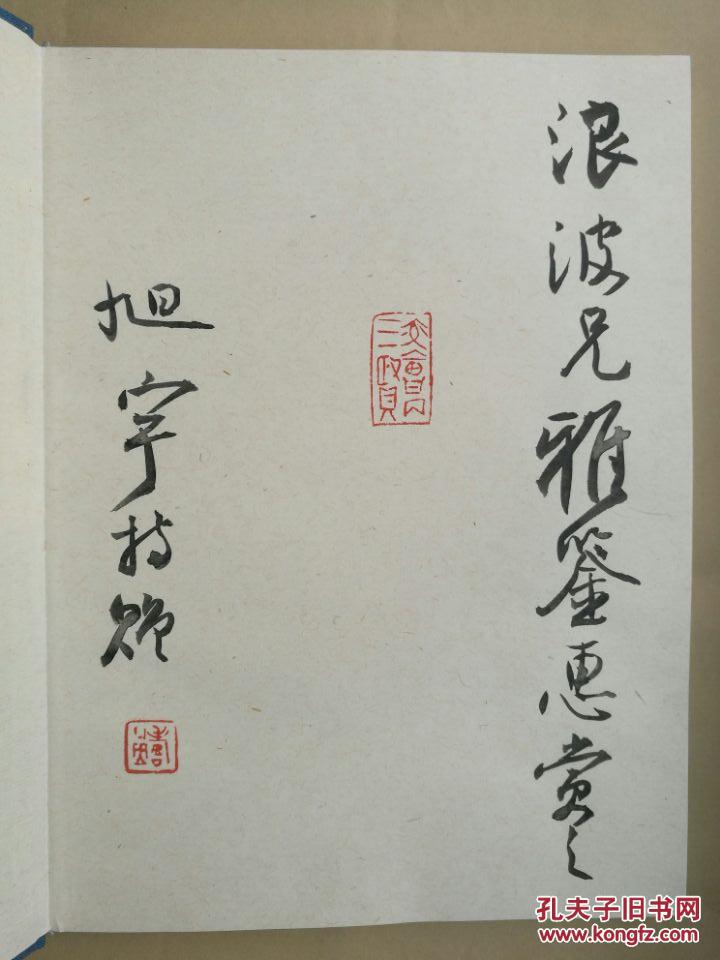 浪波兄雅鉴惠赏之
旭宇持赠
孔夫子旧书网
www.kongfz.com